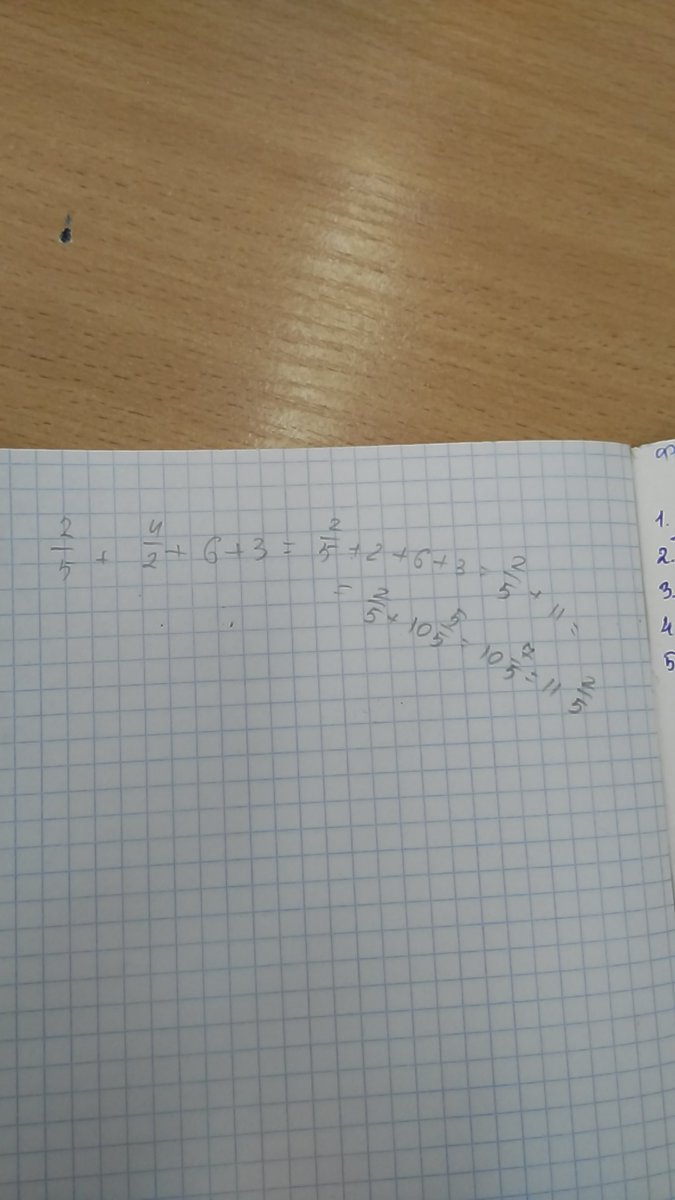 2/5 + 4/2 + 6 + 3 = 2/5 + 2 + 6 + 3 = 2/5 + 11 =
= 2/5 + 10 5/5 = 10 7/5 = 11 2/5
1.
2.
3.
4
5